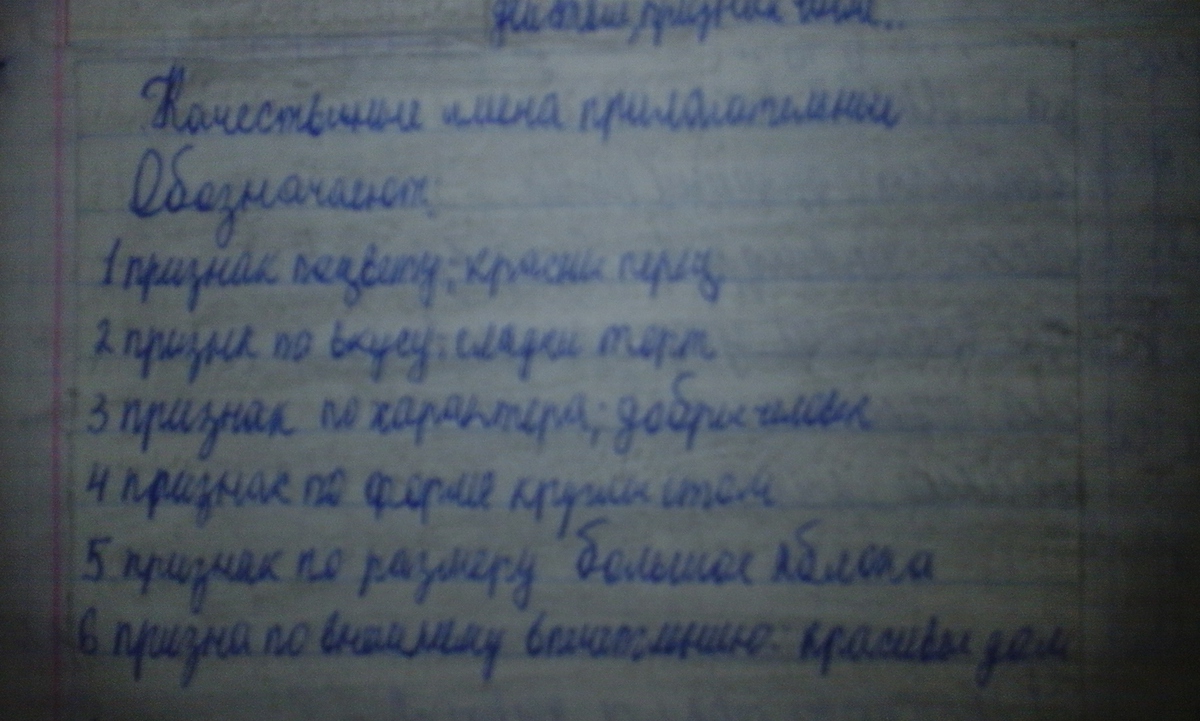 признак
Качествиные имена прилагательные
Обозначают:
1 признак по цвету: красны перец
2 призник по вкусу: сладки торт
3 признак по характера; добрые человек
4 признак по форме круглы стол
5 признак по размеру большое яблока
6 призна по впечатлению: красивые дом